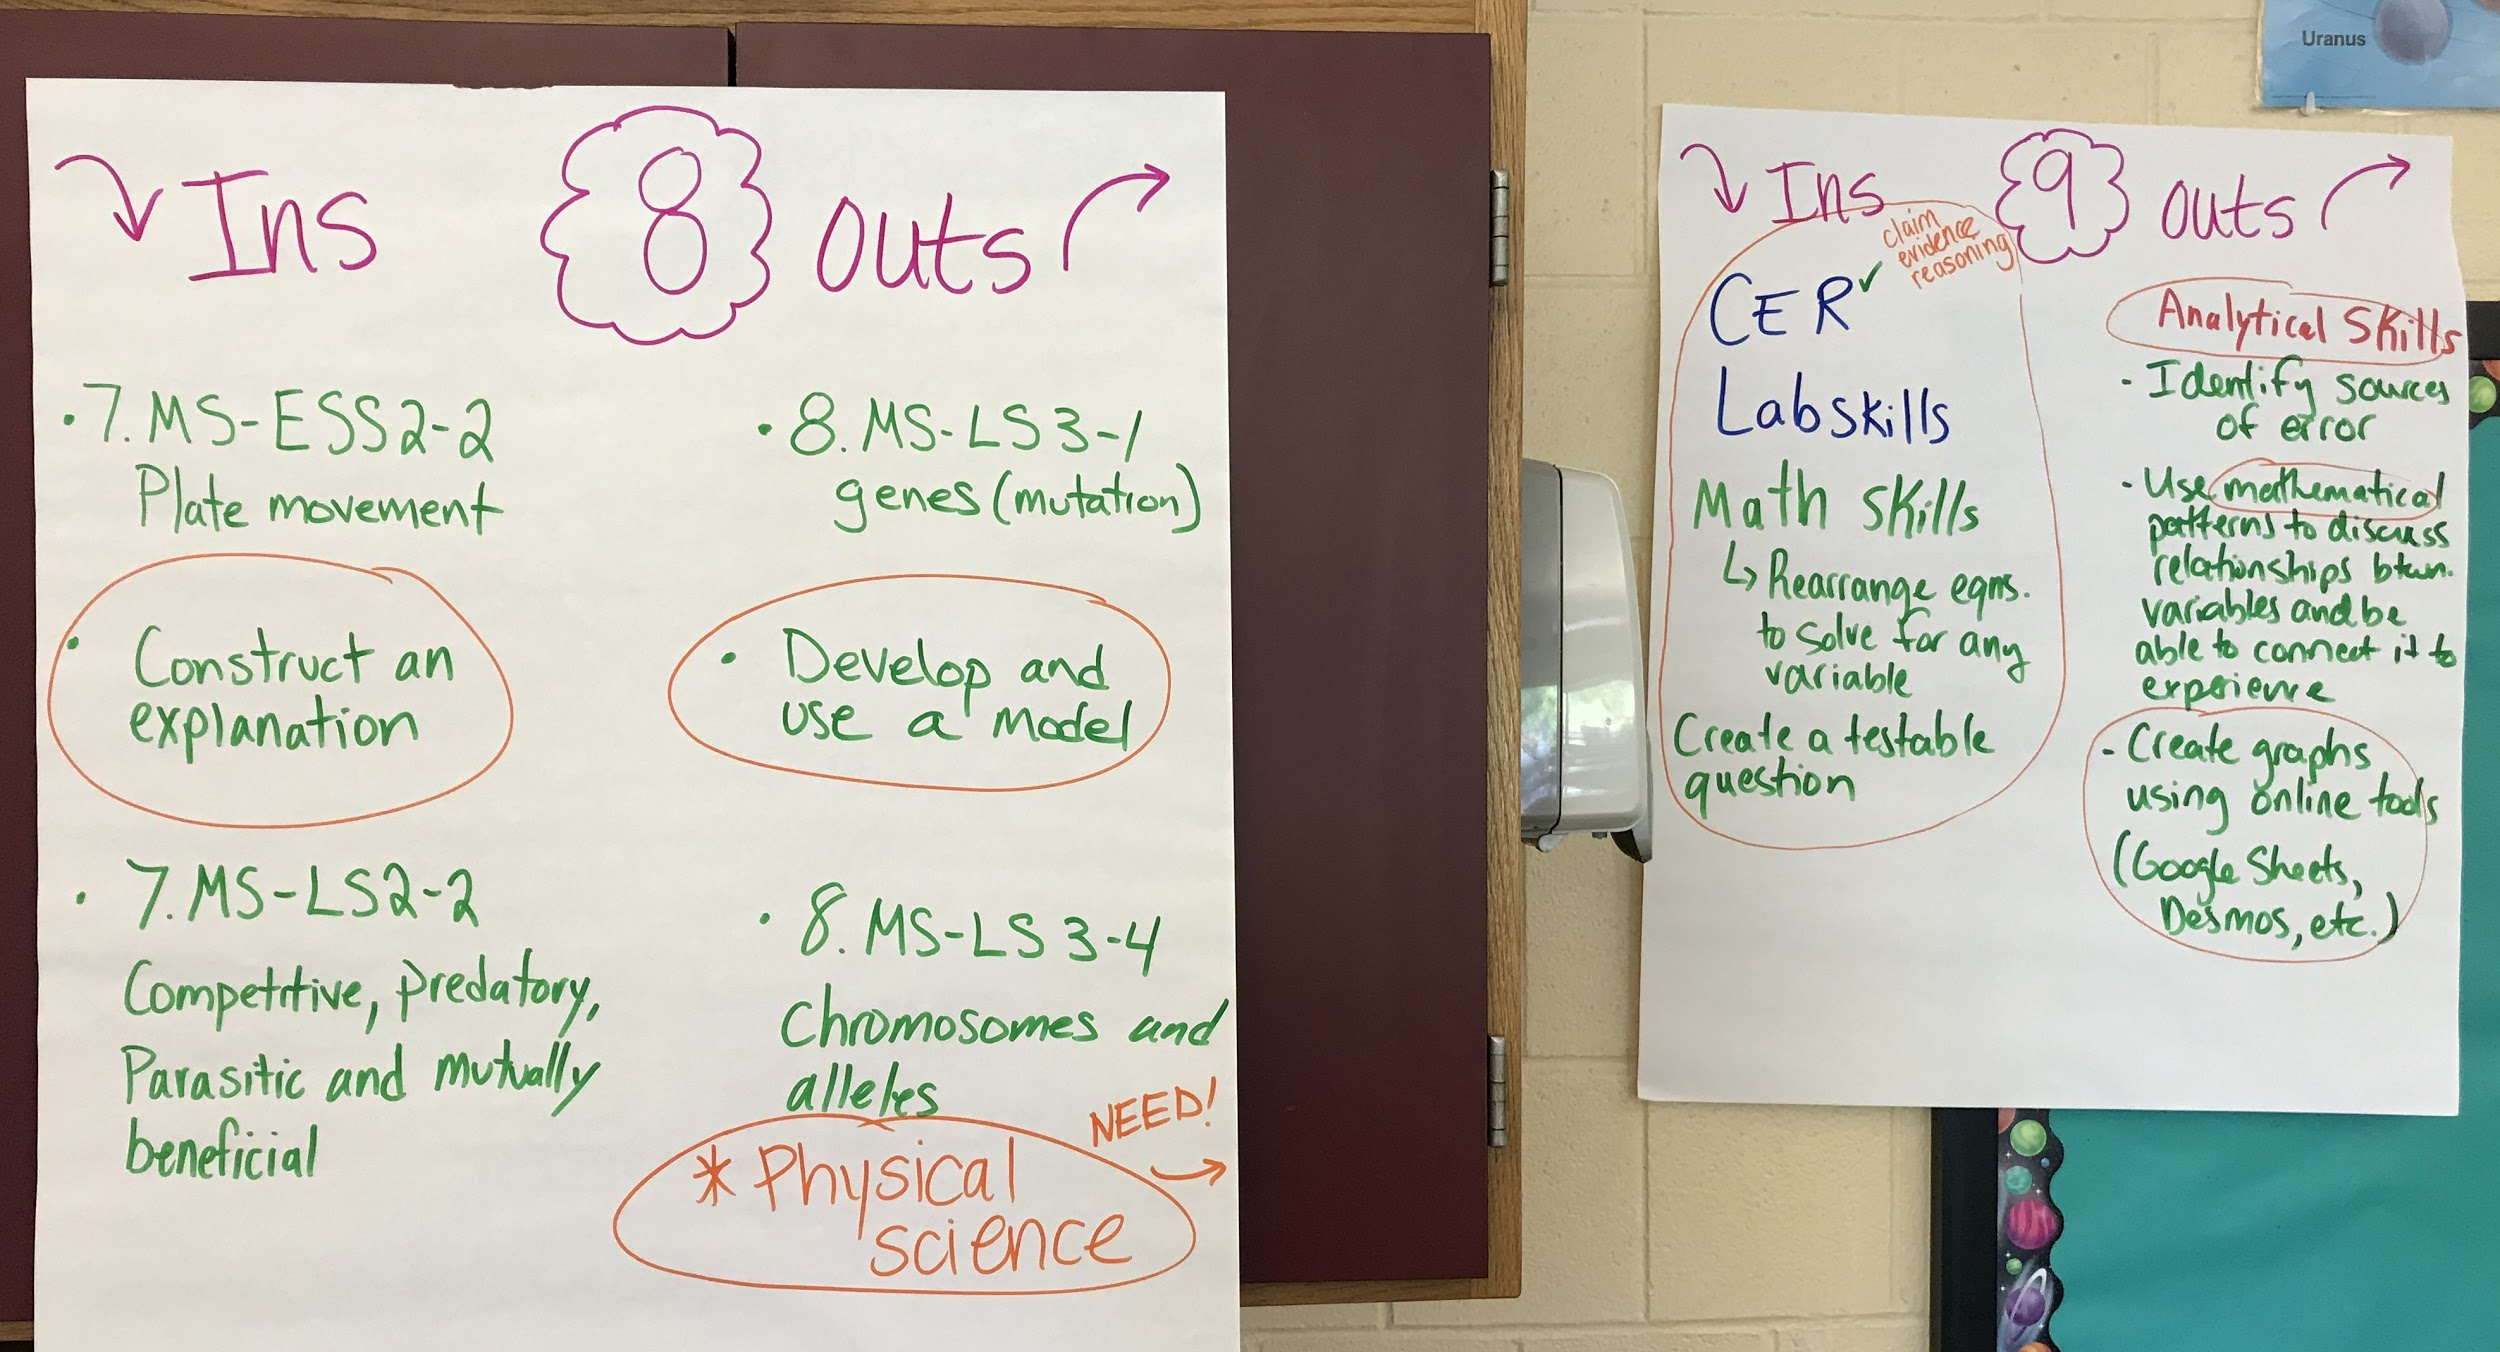 Ins 8 outs
• 7.MS-ESS2-2
Plate movement
• Construct an
explanation
• 7.MS-LS2-2
Competitive, predatory,
Parasitic and mutually
beneficial
• 8.MS-LS3-1
genes (mutation)
• Develop and
use a model
• 8.MS-LS3-4
Chromosomes and
alleles
NEED!
* Physical
science
Ins 9 outs
claim
evidence
reasoning
CER✓
Lab skills
Math skills
↳ Rearrange eqns.
to solve for any
variable
Create a testable
question
Analytical Skills
- Identify sources
of error
- Use mathematical
patterns to discuss
relationships btwn.
variables and be
able to connect it to
experience
- Create graphs
using online tools
(Google Sheets,
Desmos, etc.)
Uranus